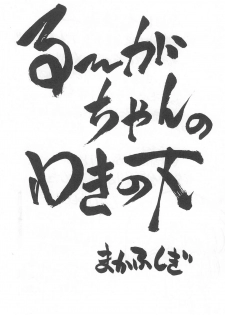 るーがに
ちゃんの
わきの下
まかふしぎ